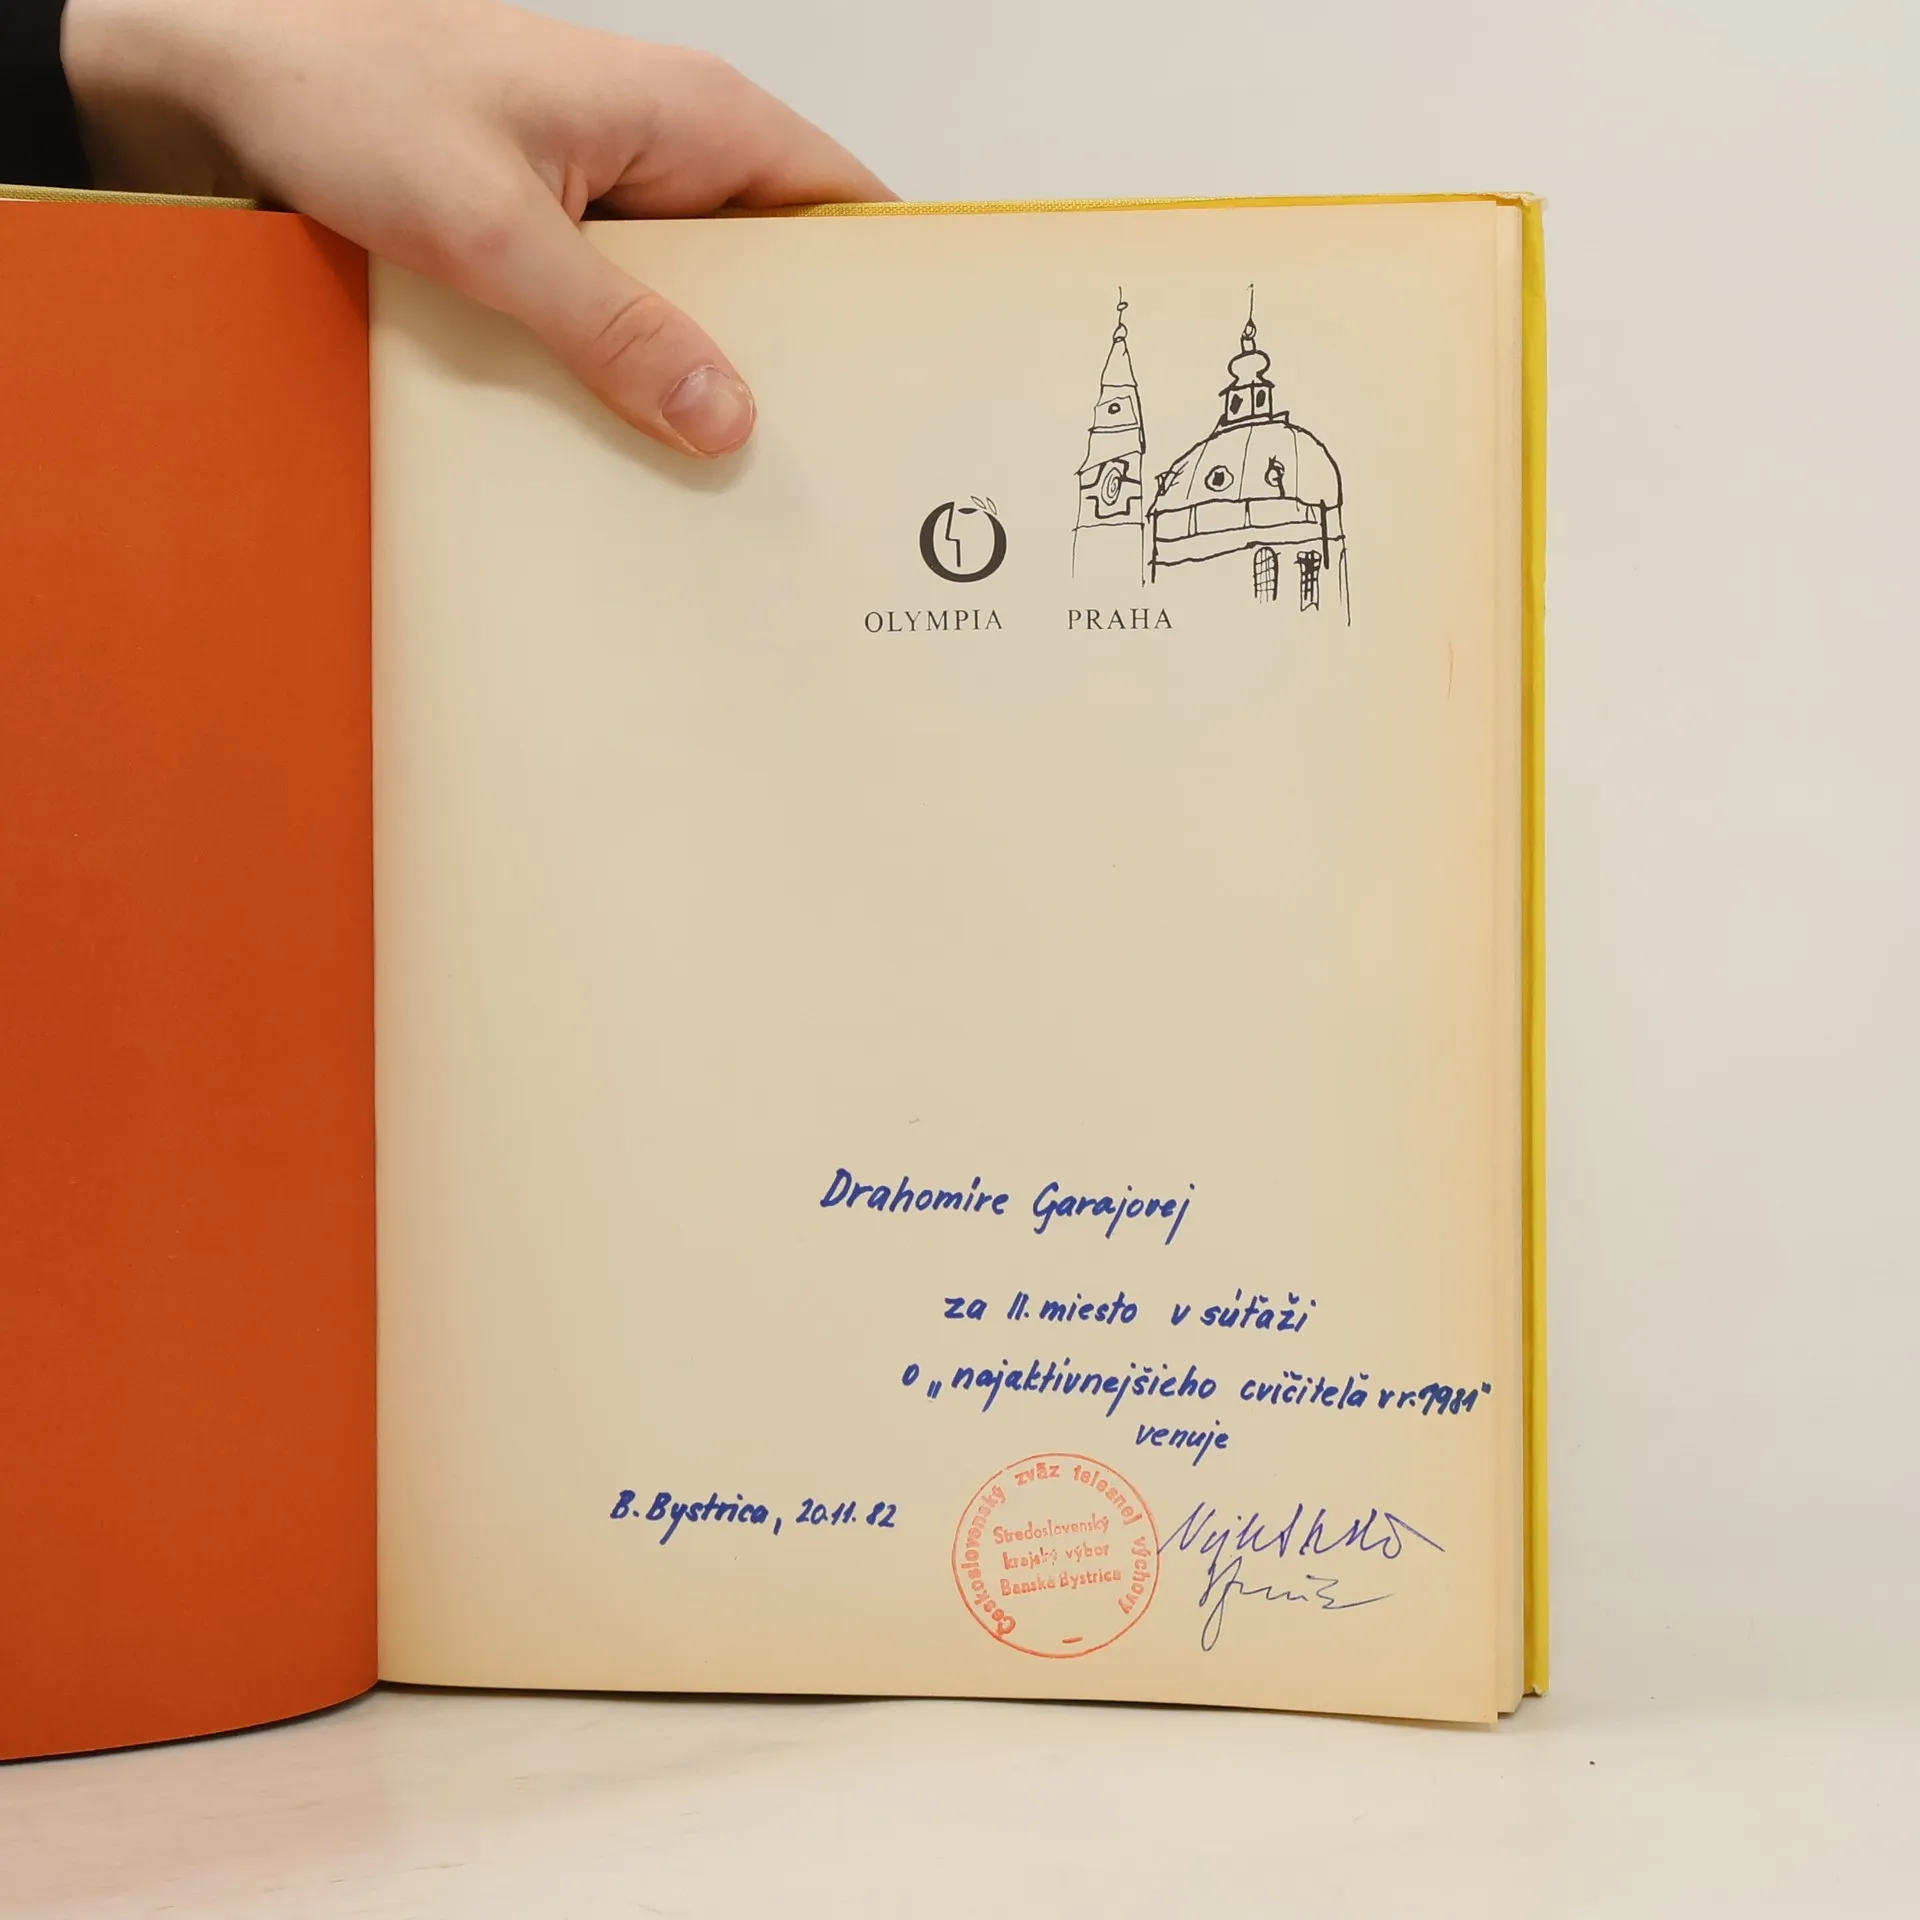 OLYMPIA PRAHA
Drahomíre Garajovej
za II. miesto v súťaži
o „najaktívnejšieho cvičiteľa v r. 1981"
venuje
B. Bystrica, 20.11. 82
Československý zväz telesnej výchovy
Stredoslovenský
krajský výbor
Banská Bystrica